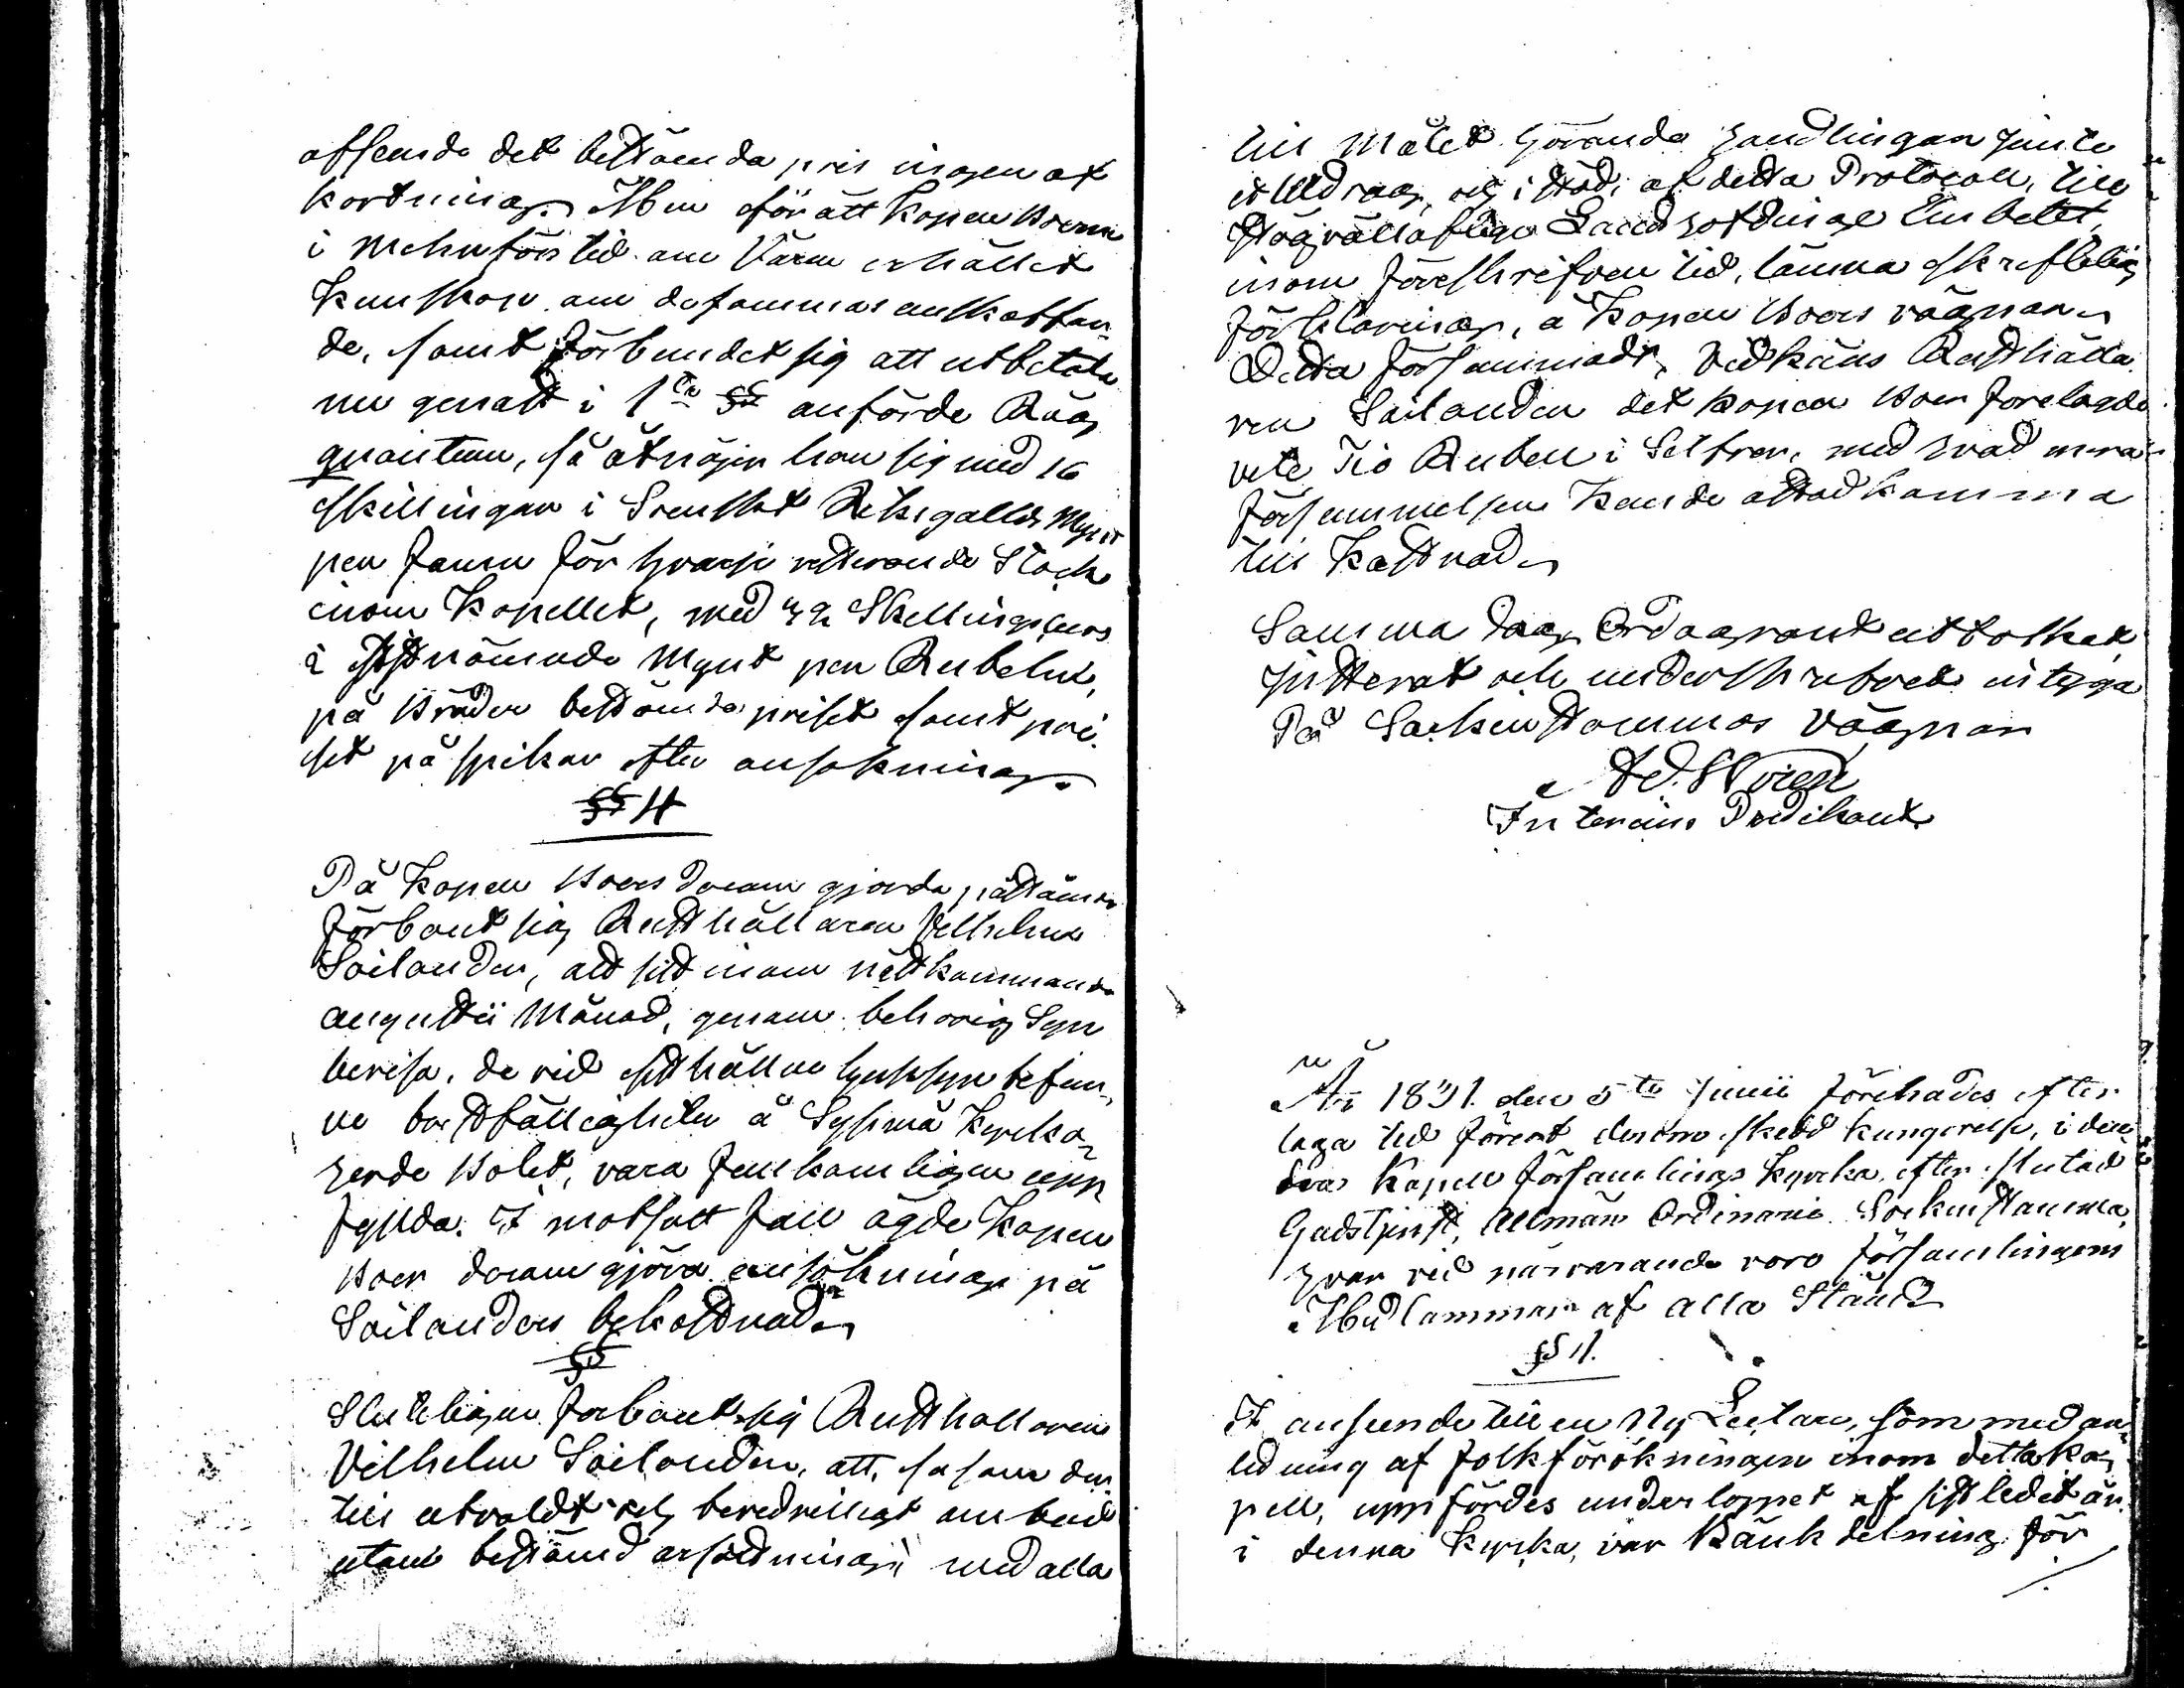 afseende det bestämda pris ingen af
kortning. Men för att Kapell Boerne
i mehnförs tid om Våren erhållit
Kunskap om desammas anskaffan
de, samt förbundet sig att utbetala
nu genast i 1sta § anförde Råg
quantum, så åtnöjer han sig med 16
skillingar i Svenskt Riksgälds Mynt
per famn för hvarje resterande Stock
inom Kapellet, med 32 Skillingars
i sistnämnde Mynt per Rubelns,
på Bräder bestämda priset samt pri
set på spikar efter ansökning.
§ 4
På Kapell Boers derom gjorda påstående
förbant sig Rusthållaren Vilhelm
Soilander, att sist inom nästkommande
augustii Månad, genom behörig Syn
bevisa, de vid sisthållne Hussyn befun
ne bristfälligheter å Sysmä Kyrko
herde Bolet, vara fullkomligen upp
fyllda. I motsatt fall ägde Kapell
Boer derom gjöra ansökning på
Soilanders bekostnad
§
Slutligen förbant sig Rusthållaren
Vilhelm Soilander, att, såsom der
till utvaldt och beredvilligt ombud
utan bestämd ersättning med alla
till målet hörande handlingar jemte
et Utdrag, och i stöd, af detta Protocoll, till
Högvällofliga Landshöfdinge Embetet,
inom föreskrifven tid, lämna skriftelig
förklaring, å Kapell Boers vägnar
Detta försummadt, vidkäns Rusthålla
ren Soilander det Kapell Boer förelagde
vite Tio Rubel i Silfver, med hvad mera
försummelsen kunde åstadkomma
till Kostnad
Samma dag Ordagrant uttolkat
justerat och underskrifvet intyga
På Sockenstämmas vägnar
Ad. Wiren
Interims Predikant
År 1831 den 5te Junii förehades efter
laga tid förut derom skedd kungörelse, i den
dra Kapell församlings Kyrka, efter slutad
Gudstjenst, Allmän Ordinarie Sockenstämma,
hvar vid närvarande voro församlingens
Medlemmar af alla Stånd
§ 1.
I anseende till en Ny Lectare, som med an
ledning af folkförökningen inom detta Ka
pell, uppfördes under loppet af sistledit år
i denna Kyrka, var Bänk delning för